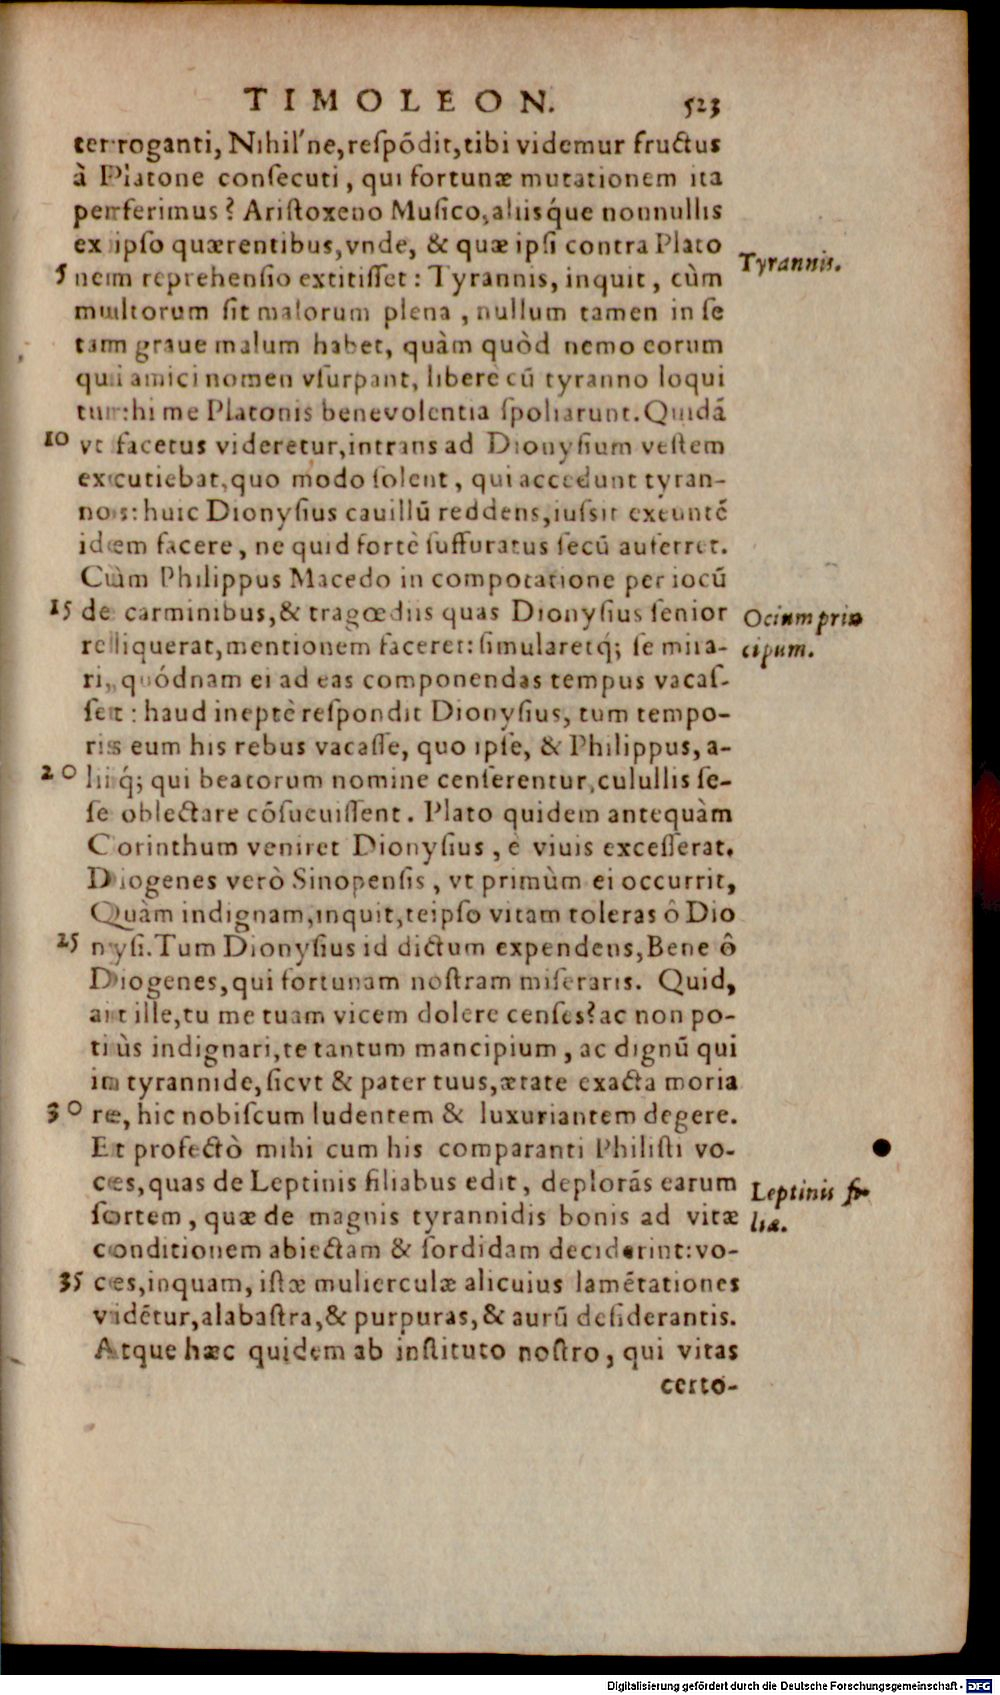 TIMOLEON. 523
terroganti, Nihil'ne, respõdit, tibi videmur fructus
à Platone consecuti, qui fortunæ mutationem ita
perferimus? Aristoxeno Musico, aliisq́ue nonnullis
ex ipso quærentibus, vnde, & quæ ipsi contra Plato
5 nem reprehensio extitisset: Tyrannis, inquit, cùm
Tyrannis.
multorum sit malorum plena, nullum tamen in se
tam graue malum habet, quàm quòd nemo eorum
qui amici nomen vsurpant, liberè cũ tyranno loqui
tur: hi me Platonis benevolentia spoliarunt. Quidã
10 vt facetus videretur, intrans ad Dionysium vestem
excutiebat, quo modo solent, qui accedunt tyran-
nos: huic Dionysius cauillũ reddens, iussit exeuntẽ
idem facere, ne quid fortè suffuratus secũ auferret.
Cùm Philippus Macedo in compotatione per iocũ
15 de carminibus, & tragœdiis quas Dionysius senior
Ocium prin
reliquerat, mentionem faceret: simularetq́; se mira-
cipum.
ri, quódnam ei ad eas componendas tempus vacas-
set: haud ineptè respondit Dionysius, tum tempo-
ris eum his rebus vacasse, quo ipse, & Philippus, a-
20 liiq́; qui beatorum nomine censerentur, culullis se-
se oblectare cõsueuissent. Plato quidem antequàm
Corinthum veniret Dionysius, è viuis excesserat.
Diogenes verò Sinopensis, vt primùm ei occurrit,
Quàm indignam, inquit, teipso vitam toleras ô Dio
25 nysi. Tum Dionysius id dictum expendens, Bene ô
Diogenes, qui fortunam nostram miseraris. Quid,
ait ille, tu me tuam vicem dolere censes? ac non po-
tiùs indignari, te tantum mancipium, ac dignũ qui
in tyrannide, sicvt & pater tuus, ætate exacta moria
30 re, hic nobiscum ludentem & luxuriantem degere.
Et profectò mihi cum his comparanti Philisti vo-
ces, quas de Leptinis filiabus edit, deplorãs earum
Leptinis fi-
sortem, quæ de magnis tyrannidis bonis ad vitæ
liæ.
conditionem abiectam & sordidam deciderint: vo-
35 ces, inquam, istæ mulierculæ alicuius lamẽtationes
vidẽtur, alabastra, & purpuras, & aurũ desiderantis.
Atque hæc quidem ab instituto nostro, qui vitas
certo-
Digitalisierung gefördert durch die Deutsche Forschungsgemeinschaft - DFG